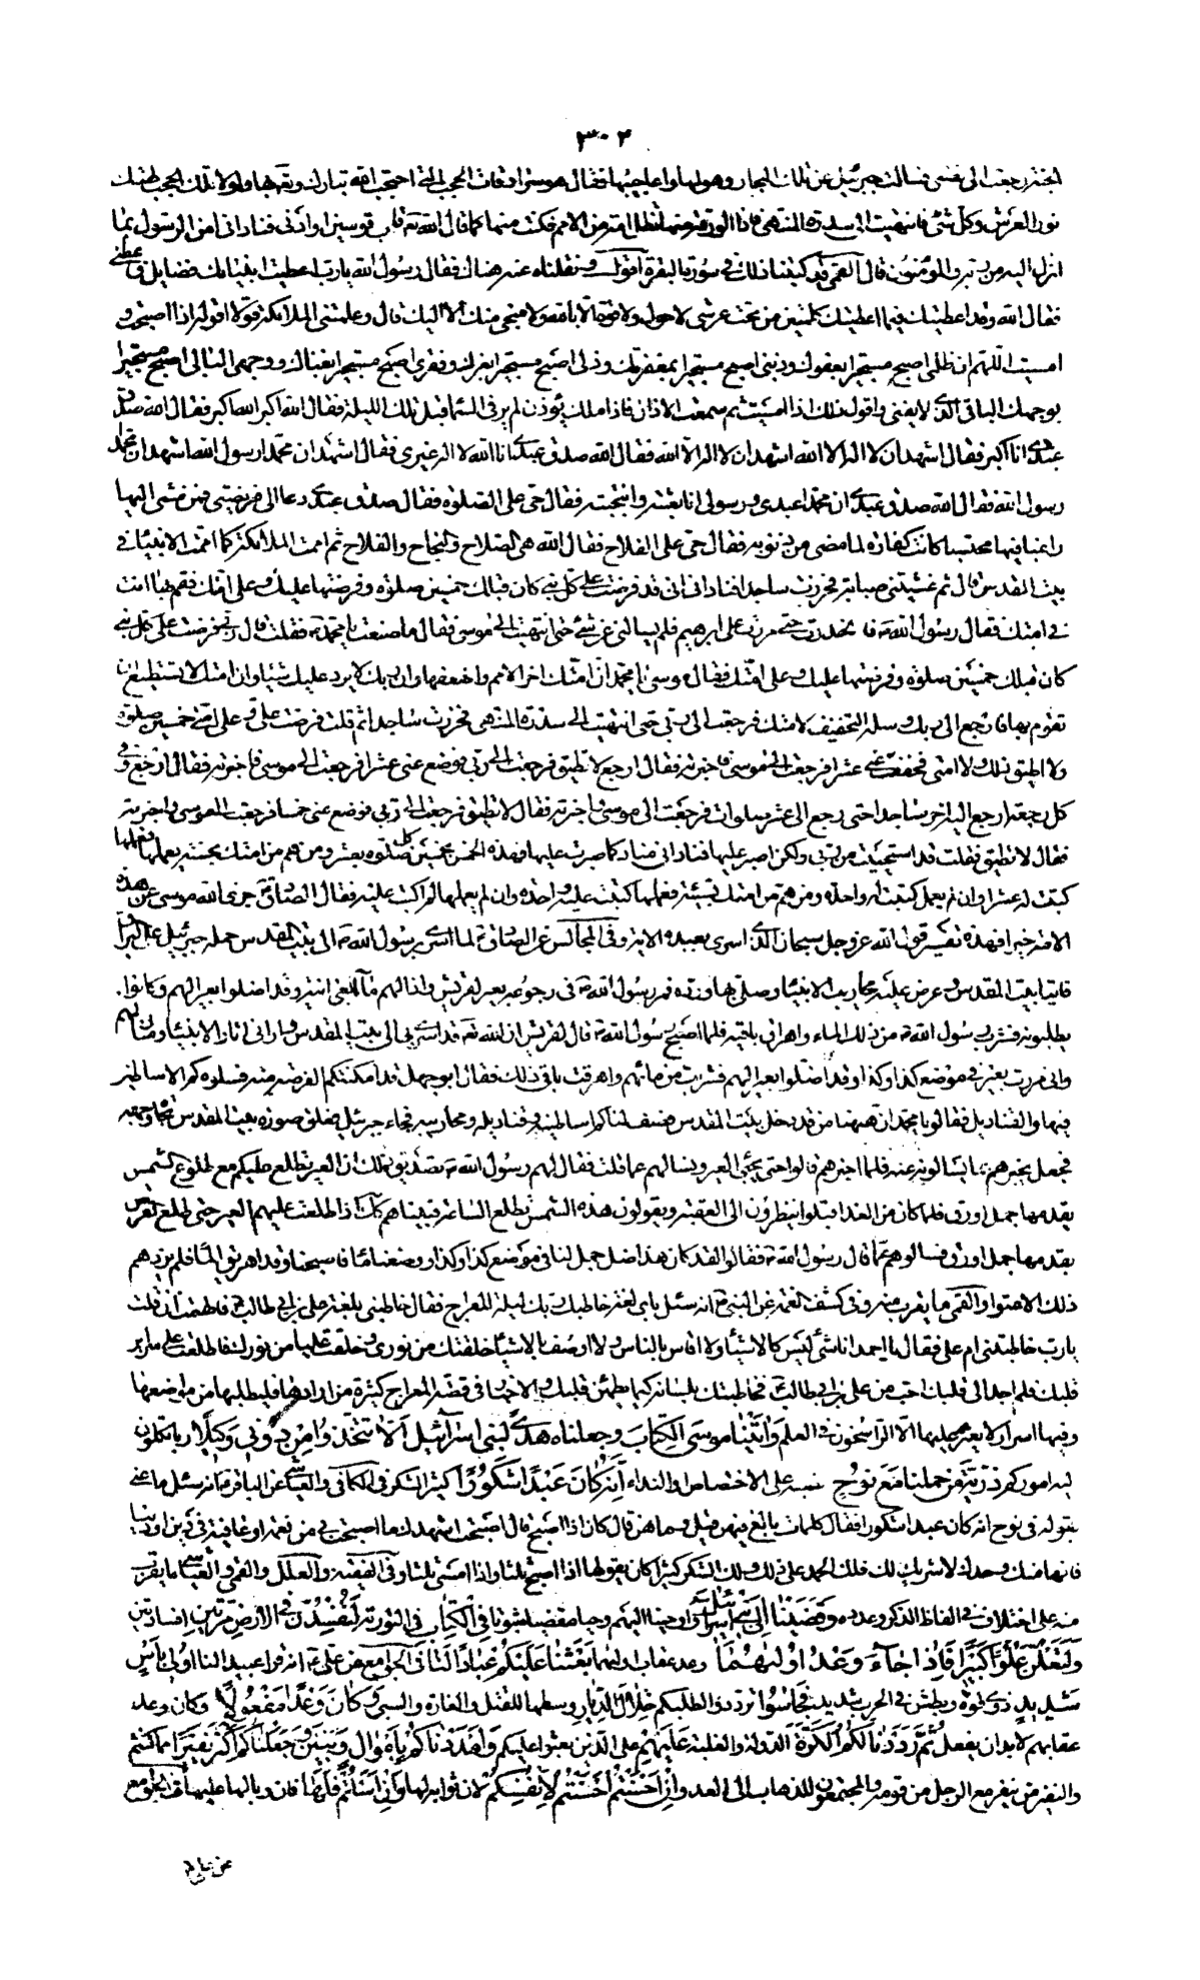 ٣٠٢
الجنة رجعت الى نفسى فسالت جبرئيل عن تلك البحار وهولها واعاجيبها فقال هو سرادقات الحجب التى احتجب الله تبارك وتعالى بها ولولا تلك الحجب لهتك
نور العرش وكل شئ فانتهيت الى سدرة المنتهى فاذا الورقة منها تظل امة من الامم فكنت منها كما قال الله تعالى قاب قوسين او ادنى فنادانى امن الرسول بما
انزل اليه من ربه والمؤمنون قال القمى وقد كتبنا ذلك فى سورة البقرة اقول ونقلناه عنه هناك فقال رسول الله يا رب اعطيت انبيائك فضايل فاعطنى
فقال الله وقد اعطيتك فيما اعطيتك كلمتين من تحت عرشى لا حول ولا قوة الا بالله ولا منجى منك الا اليك قال وعلمتنى الملائكة قولا اقوله اذا اصبحت و
امسيت اللهم ان ظلمى اصبح مستجيرا بعفوك وذنبى اصبح مستجيرا بمغفرتك وذلى اصبح مستجيرا بعزك وفقرى اصبح مستجيرا بغناك ووجهى البالى اصبح مستجيرا
بوجهك الباقى الذى لا يفنى واقول ذلك اذا امسيت ثم سمعت الاذان فاذا ملك يؤذن لم ير فى السماء قبل تلك الليلة فقال الله اكبر الله اكبر فقال الله صدق
عبدى انا اكبر فقال اشهد ان لا اله الا الله اشهد ان لا اله الا الله فقال الله صدق عبدى انا الله لا اله غيرى فقال اشهد ان محمدا رسول الله اشهد ان محمدا
رسول الله فقال الله صدق عبدى ان محمدا عبدى ورسولى انا بعثته وانتجبته فقال حى على الصلوة فقال صدق عبدى دعا الى فريضتى فمن مشى اليها
راغبا فيها محتسبا كانت كفارة لما مضى من ذنوبه فقال حى على الفلاح فقال الله هى الصلاح والنجاح والفلاح ثم اممت الملائكة كما اممت الانبياء فى
بيت المقدس قال ثم غشيتنى صبابة فخررت ساجدا فنادانى انى قد فرضت على كل نبى كان قبلك خمسين صلوة وفرضتها عليك وعلى امتك فقم بها انت
فى امتك فقال رسول الله فانحدرت حتى مررت على ابرهيم فلم يسالنى عن شئ حتى انتهيت الى موسى فقال ما صنعت يا محمد فقلت قال ربى فرضت على كل نبى
كان قبلك خمسين صلوة وفرضتها عليك وعلى امتك فقال موسى يا محمد ان امتك اخر الامم واضعفها وان ربك لا يرد عليك شيئا وان امتك لا تستطيع ان
تقوم بها فارجع الى ربك وسله التخفيف لامتك فرجعت الى ربى حتى انتهيت الى سدرة المنتهى فخررت ساجدا ثم قلت فرضت على وعلى امتى خمسين صلوة
ولا اطيق ذلك ولا امتى فخفف عنى فوضع عنى عشرا فرجعت الى موسى فاخبرته فقال ارجع لا تطيق فرجعت الى ربى فوضع عنى عشرا فرجعت الى موسى فاخبرته فقال ارجع وفى
كل رجعة ارجع اليه اخر ساجدا حتى رجع الى عشر صلوات فرجعت الى موسى واخبرته فقال لا تطيق فرجعت الى ربى فوضع عنى خمسا فرجعت الى موسى واخبرته
فقال لا تطيق فقلت قد استحييت من ربى ولكن اصبر عليها فنادانى مناد كما صبرت عليها فهذه الخمس بخمسين كل صلوة بعشر ومن هم من امتك بحسنة يعملها فعملها
كتبت له عشرا وان لم يعمل كتبت له واحدة ومن هم من امتك بسيئة فعملها كتبت عليه واحدة وان لم يعملها لم اكتب عليه فقال الصادق جزى الله موسى عن هذه
الامة خيرا فهذه تفسير قول الله عز وجل سبحان الذى اسرى بعبده الاية وفى المجالس عن الصادق لما اسرى برسول الله الى بيت المقدس حمله جبرئيل على البراق
فاتيا بيت المقدس وعرض عليه محاريب الانبياء وصلى بها ورده فمر رسول الله فى رجوعه بعير لقريش واذا لهم ماء فى انية وقد اضلوا بعيرا لهم وكانوا
يطلبونه فشرب رسول الله من ذلك الماء واهرق باقيه فلما اصبح رسول الله قال لقريش ان الله تعالى قد اسرى بى الى بيت المقدس وارانى اثار الانبياء ومنازلهم
وانى مررت بعير فى موضع كذا وكذا وقد اضلوا بعيرا لهم فشربت من مائهم واهرقت باقى ذلك فقال ابو جهل قد امكنتكم الفرصة منه فسلوه كم الاساطين
فيها والقناديل فقالوا يا محمد ان ههنا من قد دخل بيت المقدس فصف لنا كم اساطينه وقناديله ومحاريبه فجاء جبرئيل فعلق صورة بيت المقدس تجاه وجهه
فجعل يخبرهم بما يسالونه عنه فلما اخبرهم قالوا حتى يجئ العير ونسالهم عما قلت فقال لهم رسول الله تصديق ذلك ان العير تطلع عليكم مع طلوع الشمس
يقدمها جمل اورق فلما كان من الغد اقبلوا ينظرون الى العقبة ويقولون هذه الشمس تطلع الساعة فبينا هم كك اذ طلعت عليهم العير حين طلع القرص
يقدمها جمل اورق فسالوهم عما قال رسول الله فقالوا لقد كان هذا ضل جمل لنا فى موضع كذا وكذا ووضعنا ماء فاصبحنا وقد اهريق الماء فلم يزدهم
ذلك الا عتوا والقمى ما يقرب منه وفى كشف الغمة عن النبى انه سئل باى لغة خاطبك ربك ليلة المعراج فقال خاطبنى بلغة على بن ابى طالب فالهمنى ان قلت
يا رب خاطبتنى ام على فقال يا احمد انا شئ ليس كالاشياء ولا اقاس بالناس ولا اوصف بالاشياء خلقتك من نورى وخلقت عليا من نورك فاطلعت على سراير
قلبك فلم اجد الى قلبك احب من على بن ابى طالب فخاطبتك بلسانه كيما يطمئن قلبك والاخبار فى قصة المعراج كثيرة من ارادها فليطلبها من مواضعها
وفيها اسرار لا يعثر عليها الا الراسخون فى العلم وَاتَيْنَا مُوسَى الْكِتَابَ وجعلناه هدى لبنى اسرائيل اَلّا تَتَّخِذُوا مِنْ دُونِى وَكِيلًا ربا تكلون
اليه اموركم ذُرِّيَّةَ مَنْ حَمَلْنا مَعَ نُوحٍ نصبه على الاختصاص او النداء اِنَّهُ كانَ عَبْدًا شَكُورًا كثير الشكر فى الكافى والعياشى عن الباقر انه سئل ما عنى
بقوله فى نوح انه كان عبدا شكورا فقال كلمات بالغ فيهن قيل وما هن قال كان اذا اصبح قال اصبحت اشهدك ما اصبحت بى من نعمة او عافية فى دين او دنيا
فانها منك وحدك لا شريك لك فلك الحمد على ذلك ولك الشكر كثيرا كان يقولها اذا اصبح ثلثا واذا امسى ثلثا وفى الفقيه والعلل والقمى والعياشى ما يقرب
منه على اختلاف فى الفاظ الذكر وعدده وَقَضَيْنا اِلى بَنِى اِسْرائِيلَ واوحينا اليهم وحيا مقضيا مبتوتا فِى الْكِتابِ فى التورية لَتُفْسِدُنَّ فِى الْاَرْضِ مَرَّتَيْنِ افسادتين
وَلَتَعْلُنَّ عُلُوًّا كَبِيرًا فَاِذا جاءَ وَعْدُ اُولیهُما وعد عقاب اوليهما بَعَثْنا عَلَيْكُمْ عِبادًا لَنا فى الجوامع عن على انه قرا عبيدا لنا اُولِى بَأْسٍ
شَدِيدٍ ذوى قوة وبطش فى الحرب شديد فَجاسُوا ترددوا لطلبكم خِلالَ الدِّيارِ وسطها للقتل والغارة والسبى وَكانَ وَعْدًا مَفْعُولًا وكان وعد
عقابهم لابد ان يفعل ثُمَّ رَدَدْنا لَكُمُ الْكَرَّةَ الدولة والغلبة عَلَيْهِمْ على الذين بعثوا عليكم وَاَمْدَدْناكُمْ بِاَمْوالٍ وَبَنِينَ وَجَعَلْناكُمْ اَكْثَرَ نَفِيرًا مما كنتم
والنفير من ينفر مع الرجل من قومه والمجتمعون للذهاب الى العدو اِنْ اَحْسَنْتُمْ اَحْسَنْتُمْ لِاَنْفُسِكُمْ لان ثوابه لها وَاِنْ اَسَأْتُمْ فَلَها فان وبالها عليها